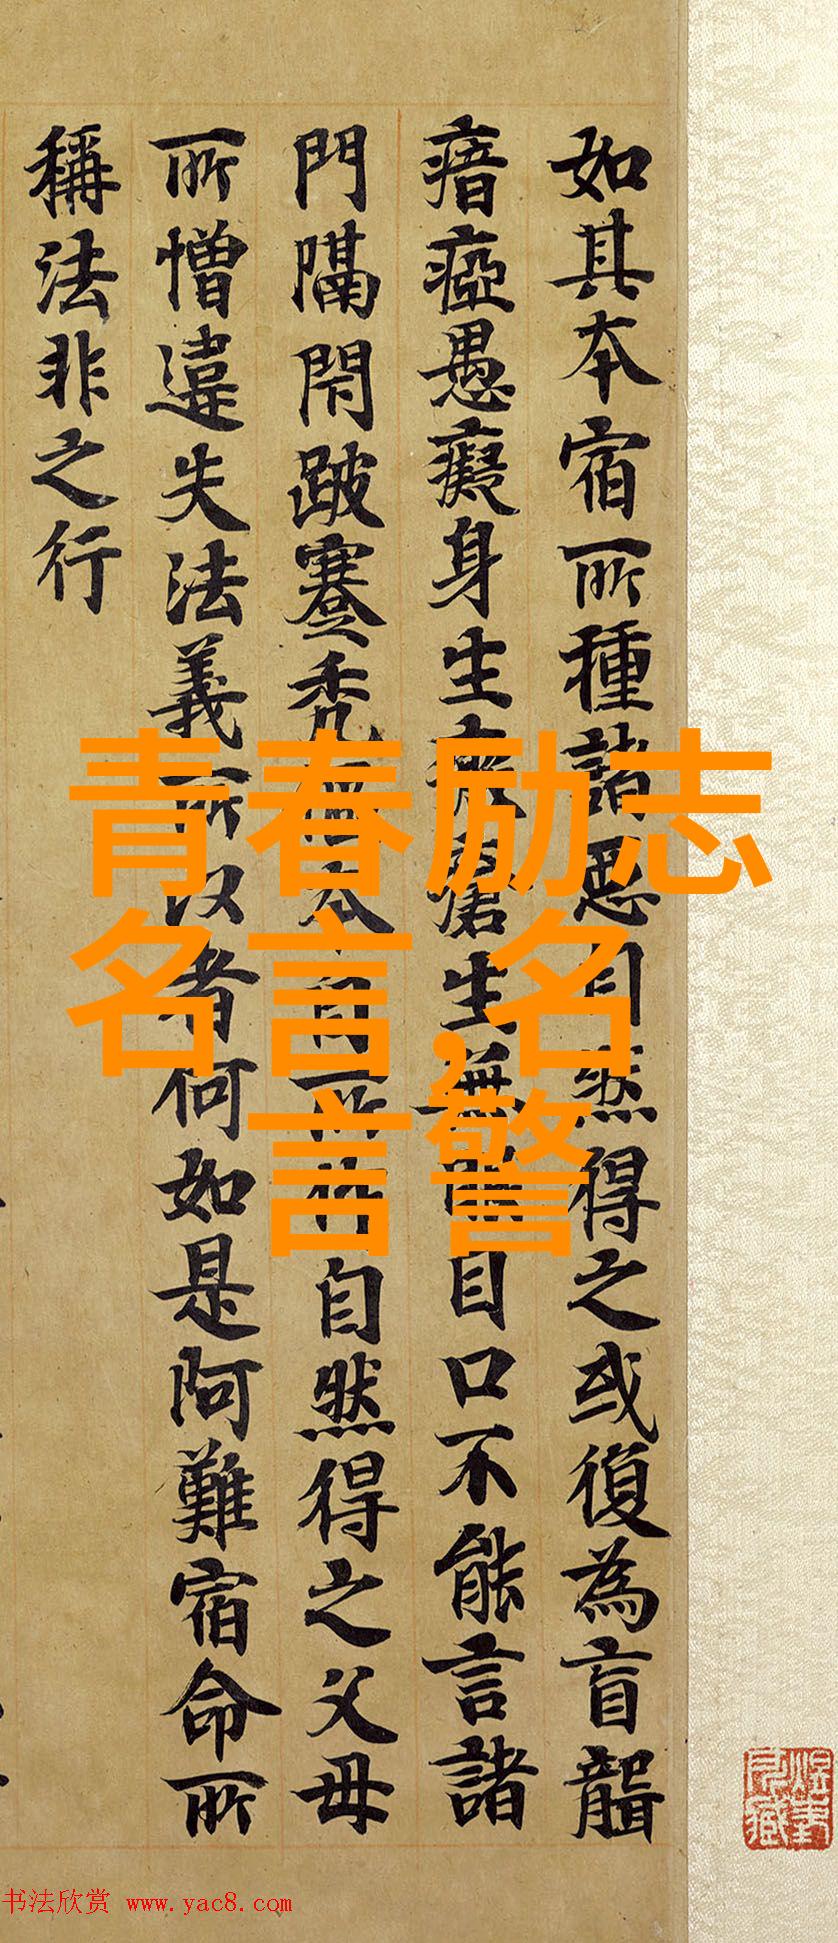 如其本宿所種諸惡自然得之或復為盲聾
瘖瘂愚癡身生瘡生無眼目口不能言諸
門隔閇跛蹇禿本自所作自然得之父母
所憎違失法義所以者何如是阿難宿命所
稱法非之行
青春励志
名言,名
言警
书法欣赏 www.yac8.com